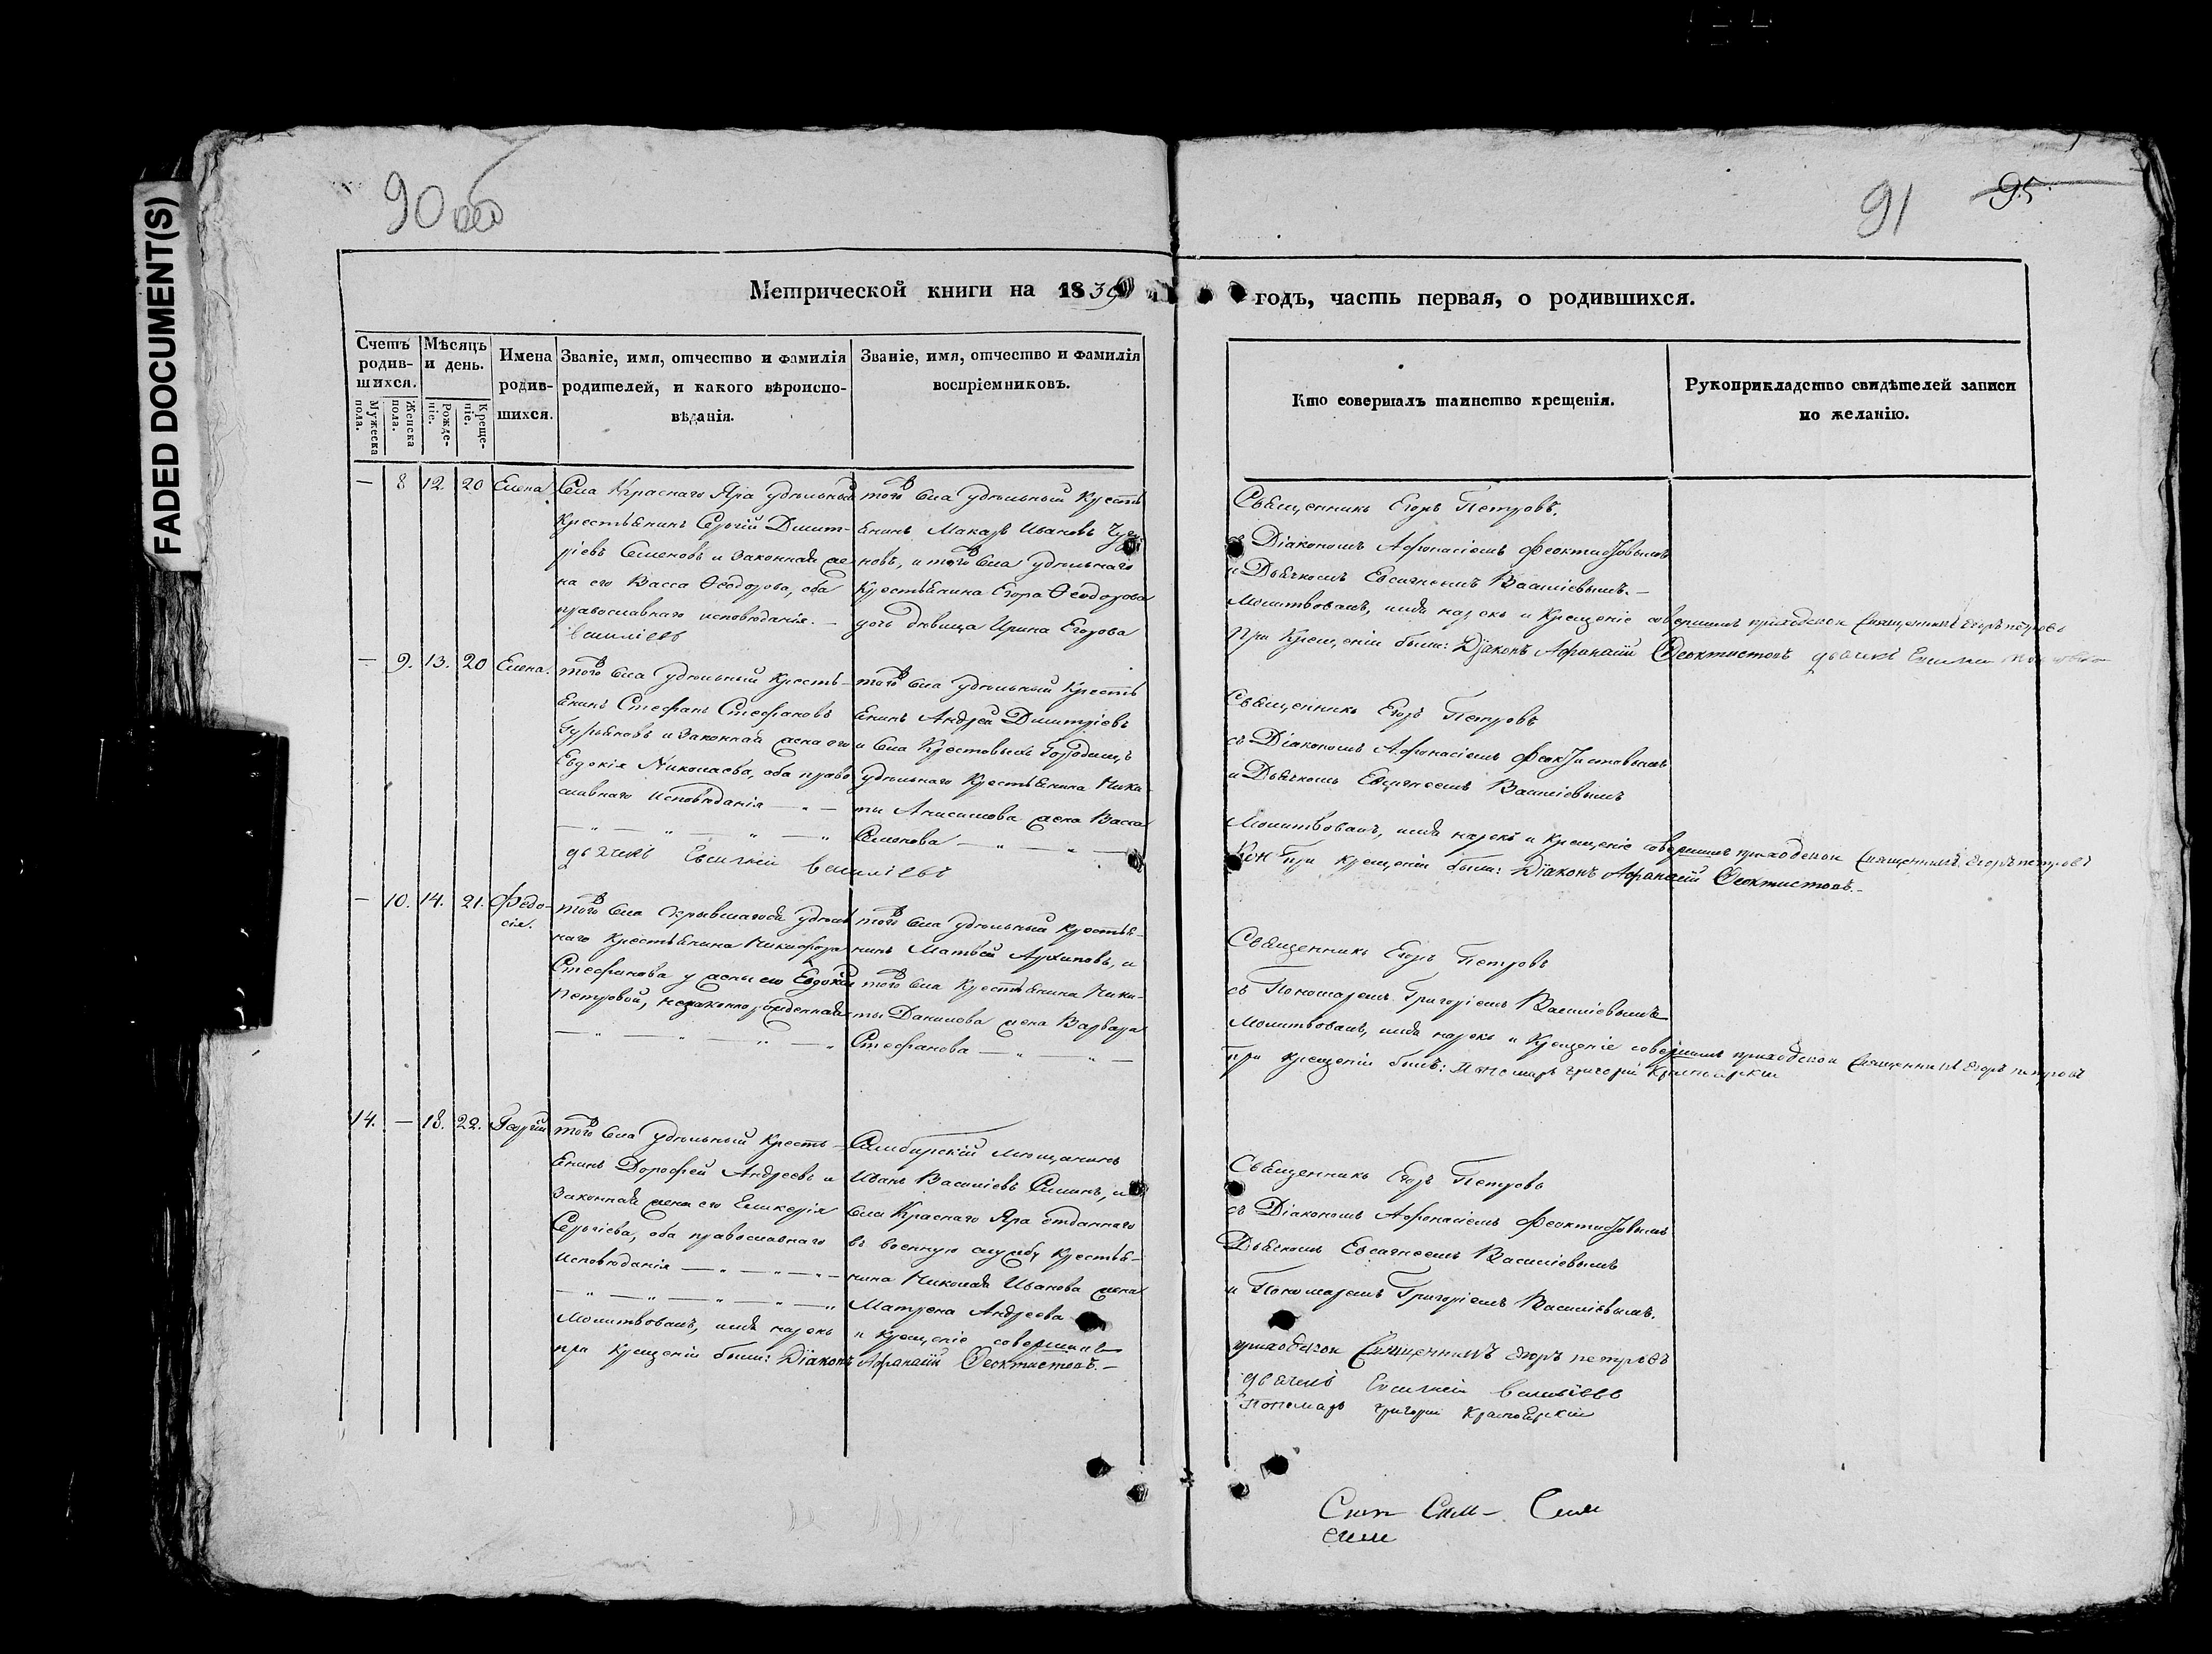 FADED DOCUMENT(S)
90 об
91 95
Метрической книги на 1839
годъ, часть первая, о родившихся.
Счетъ родив-шихся.
Мужеска пола.
Женска пола.
Мѣсяцъ и день.
Рожде-ніе.
Креще-ніе.
Имена родив-шихся.
Званіе, имя, отчество и фамилія родителей, и какого вѣроиспо-вѣданія.
Званіе, имя, отчество и фамилія воспріемниковъ.
Кто совершалъ таинство крещенія.
Рукоприкладство свидѣтелей записи по желанію.
— 8 12. 20 Елена
Села Краснаго Яра удѣльный
крестьянинъ Сергій Дмит-
ріевъ Семеновъ и законная же-
на его Васса Ѳеодорова, оба
православнаго исповѣданія. —
того Села удѣльный кресть
янинъ Макаръ Ивановъ
новъ, и того Села удѣльнаго
крестьянина Егора Ѳеодорова
дочь дѣвица Ирина Егорова
Василіевъ
Священникъ Егоръ Петровъ.
съ Діакономъ Афонасіемъ Феоктистовымъ
и Дьячкомъ Евсигнеемъ Василіевымъ. —
Молитвовалъ, имя нарекъ и Крещеніе совершилъ приходской Священникъ Егоръ Петровъ
При Крещеніи были: Діаконъ Афанасій Ѳеоктистовъ дьячекъ
— 9. 13. 20 Елена.
того Села удѣльный кресть-
янинъ Стефанъ Стефановъ
Гурьяновъ и законная жена его
Евдокія Николаева, оба право
славнаго исповѣданія — " —
того Села удѣльный кресть
янинъ Андрей Дмитріевъ
и Села Крестовыхъ Городищъ
удѣльнаго крестьянина Ники-
ты Анисимова жена Васса
Семенова — " — " —
дьячекъ Евсигней Василіевъ
Священникъ Егоръ Петровъ
съ Діакономъ Афонасіемъ Феоктистовымъ
и Дьячкомъ Евсигнеемъ Василіевымъ
Молитвовалъ, имя нарекъ и Крещеніе совершилъ приходской Священникъ Егоръ Петровъ
При крещеніи были: Діаконъ Афанасій Ѳеоктистовъ. —
— 10. 14. 21. Федо-
сія.
того Села скрывшагося удѣль
наго крестьянина Никифора
Стефанова у жены его Евдокіи
Петровой, незаконнорожденная
— " — " — " — "
того Села удѣльный крестья-
нинъ Матвей Архиповъ, и
того Села крестьянина Ники-
ты Данилова жена Варвара
Стефанова — " — " —
Священникъ Егоръ Петровъ
съ Пономаремъ Григоріемъ Василіевымъ
Молитвовалъ, имя нарекъ и Крещеніе совершилъ приходской Священникъ Егоръ Петровъ
При крещеніи былъ: Пономарь Григорій Красноярскій
14. — 18. 22. Георгій
того Села удѣльный кресть-
янинъ Дорофей Андреевъ и
законная жена его Гликерія
Сергіева, оба православнаго
исповѣданія — " — " — " —
Симбирскій мещанинъ
Иванъ Василіевъ Силинъ, и
Села Краснаго Яра отданнаго
въ военную службу крестья-
нина Николая Иванова жена
Матрена Андреева
Священникъ Егоръ Петровъ
съ Діакономъ Афонасіемъ Феоктистовымъ
Дьячкомъ Евсигнеемъ Василіевымъ
и Пономаремъ Григоріемъ Василіевымъ.
Молитвовалъ, имя нарекъ и Крещеніе совершилъ
приходской Священникъ Егоръ Петровъ
при Крещеніи были: Діаконъ Афанасій Ѳеоктистовъ. —
дьячекъ Евсигней Василіевъ
Пономарь Григорій Красноярскій